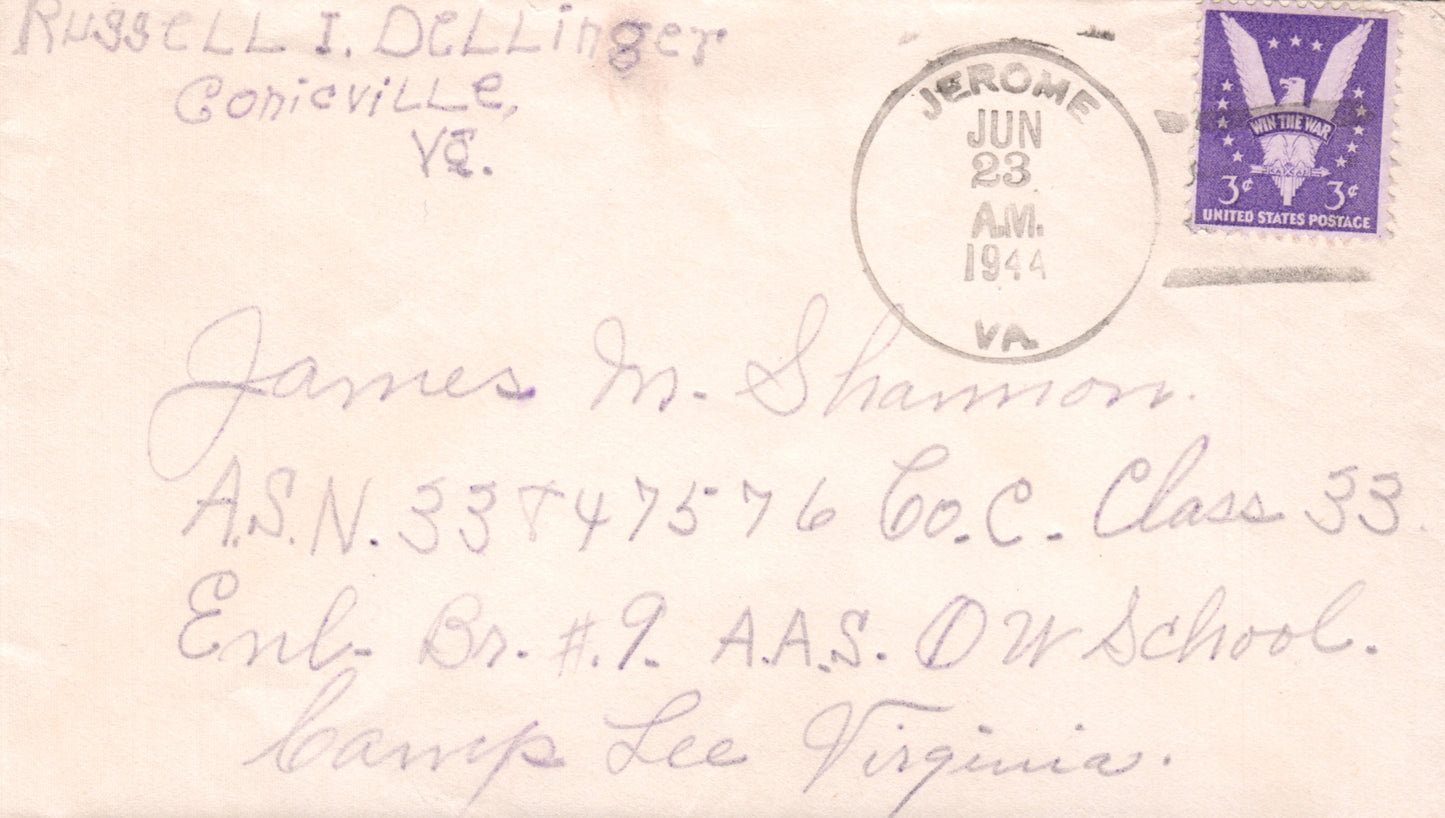 Russell I. Dellinger
Conicville,
Va.
JEROME
JUN
23
A.M.
1944
VA.
WIN THE WAR
3¢ 3¢
UNITED STATES POSTAGE
James M. Shannon.
A.S.N. 33847576 Co. C. Class 33.
Enl. Br. #.9. A.A.S. O W School.
Camp Lee Virginia.